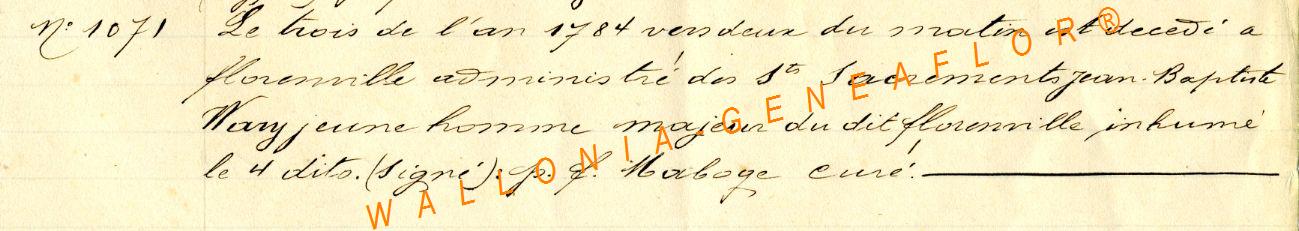 N° 1071 Le trois de l'an 1784 vers deux du matin est decedé a
florenville administré des Sts Sacrements jean-Baptiste
Wary jeune homme majeur du dit florenville, inhumé
le 4 dito. (signé): p. f. Maboge curé.
WALLONIA-GENEAFLOR®